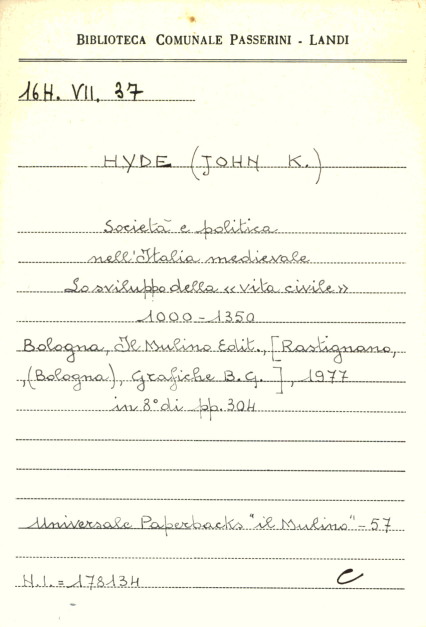 BIBLIOTECA COMUNALE PASSERINI - LANDI
16H. VII. 37
HYDE (JOHN K.)
Società e politica
nell'Italia medievale
Lo sviluppo della «vita civile»
1000-1350
Bologna, Il Mulino Edit., [Rastignano,
(Bologna), Grafiche B.G.], 1977
in 8° di pp. 304
Universale Paperbacks "il Mulino" - 57
N.I. = 178134
C